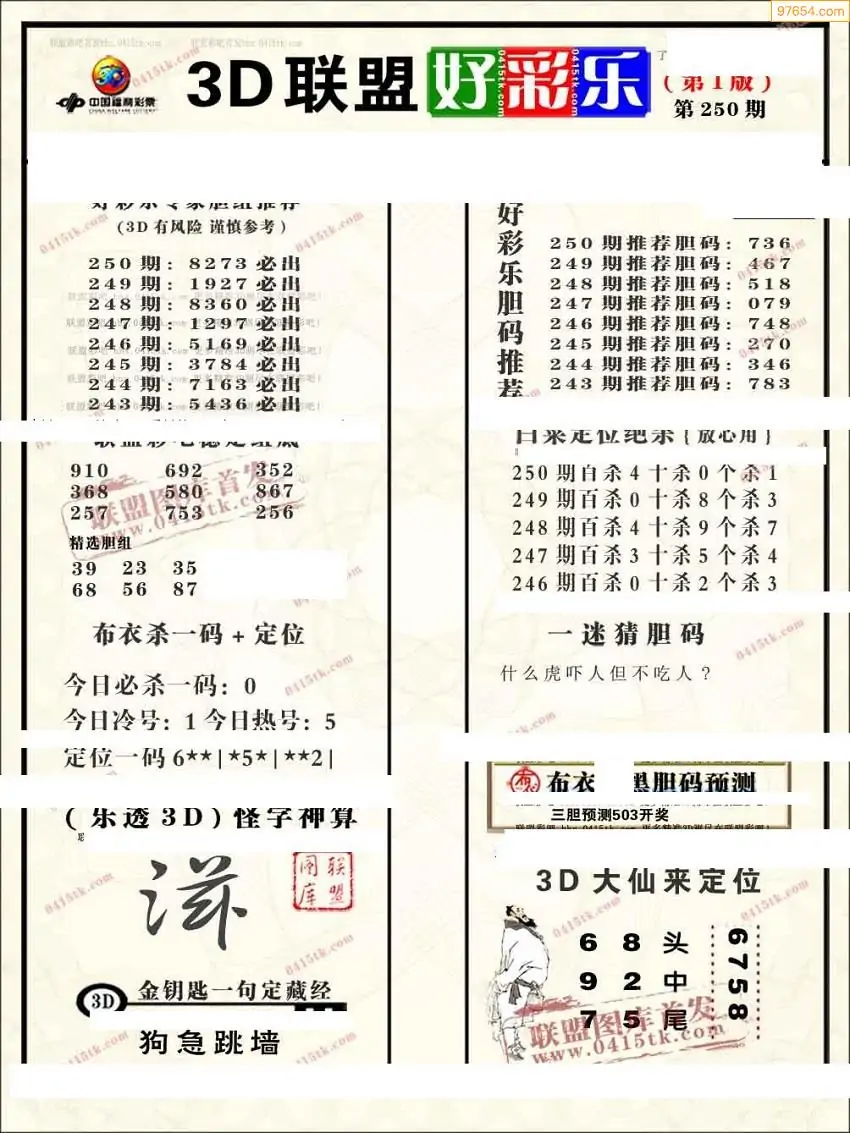 97654.com
中国福利彩票
CHINA WELFARE LOTTERY
3D联盟好彩乐
0415tk.com
(第1版)
第250期
好彩乐专家胆组推荐
(3D有风险 谨慎参考)
250期: 8273必出
249期: 1927必出
248期: 8360必出
247期: 1297必出
246期: 5169必出
245期: 3784必出
244期: 7163必出
243期: 5436必出
910 692 352
368 580 867
257 753 256
联盟图库首发
www.0415tk.com
精选胆组
39 23 35
68 56 87
布衣杀一码+定位
今日必杀一码: 0
今日冷号: 1 今日热号: 5
定位一码6**|*5*|**2|
(乐透3D)怪字神算
滋
联盟图库
3D
金钥匙一句定藏经
狗急跳墙
好彩乐胆码推荐
250期推荐胆码: 736
249期推荐胆码: 467
248期推荐胆码: 518
247期推荐胆码: 079
246期推荐胆码: 748
245期推荐胆码: 270
244期推荐胆码: 346
243期推荐胆码: 783
白菜定位绝杀{放心用}
250期百杀4十杀0个杀1
249期百杀0十杀8个杀3
248期百杀4十杀9个杀7
247期百杀3十杀5个杀4
246期百杀0十杀2个杀3
一迷猜胆码
什么虎吓人但不吃人?
布衣 黑胆码预测
三胆预测503开奖
3D大仙来定位
6 8 头
9 2 中
7 5 尾
6758
联盟图库首发
www.0415tk.com